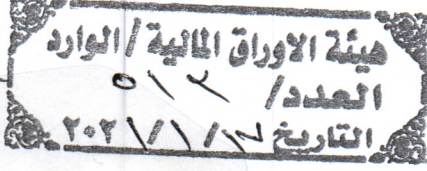 هيئة الاوراق المالية / الوارد
العدد/ ٥١٢
التاريخ ١٧/١/٢٠٢١